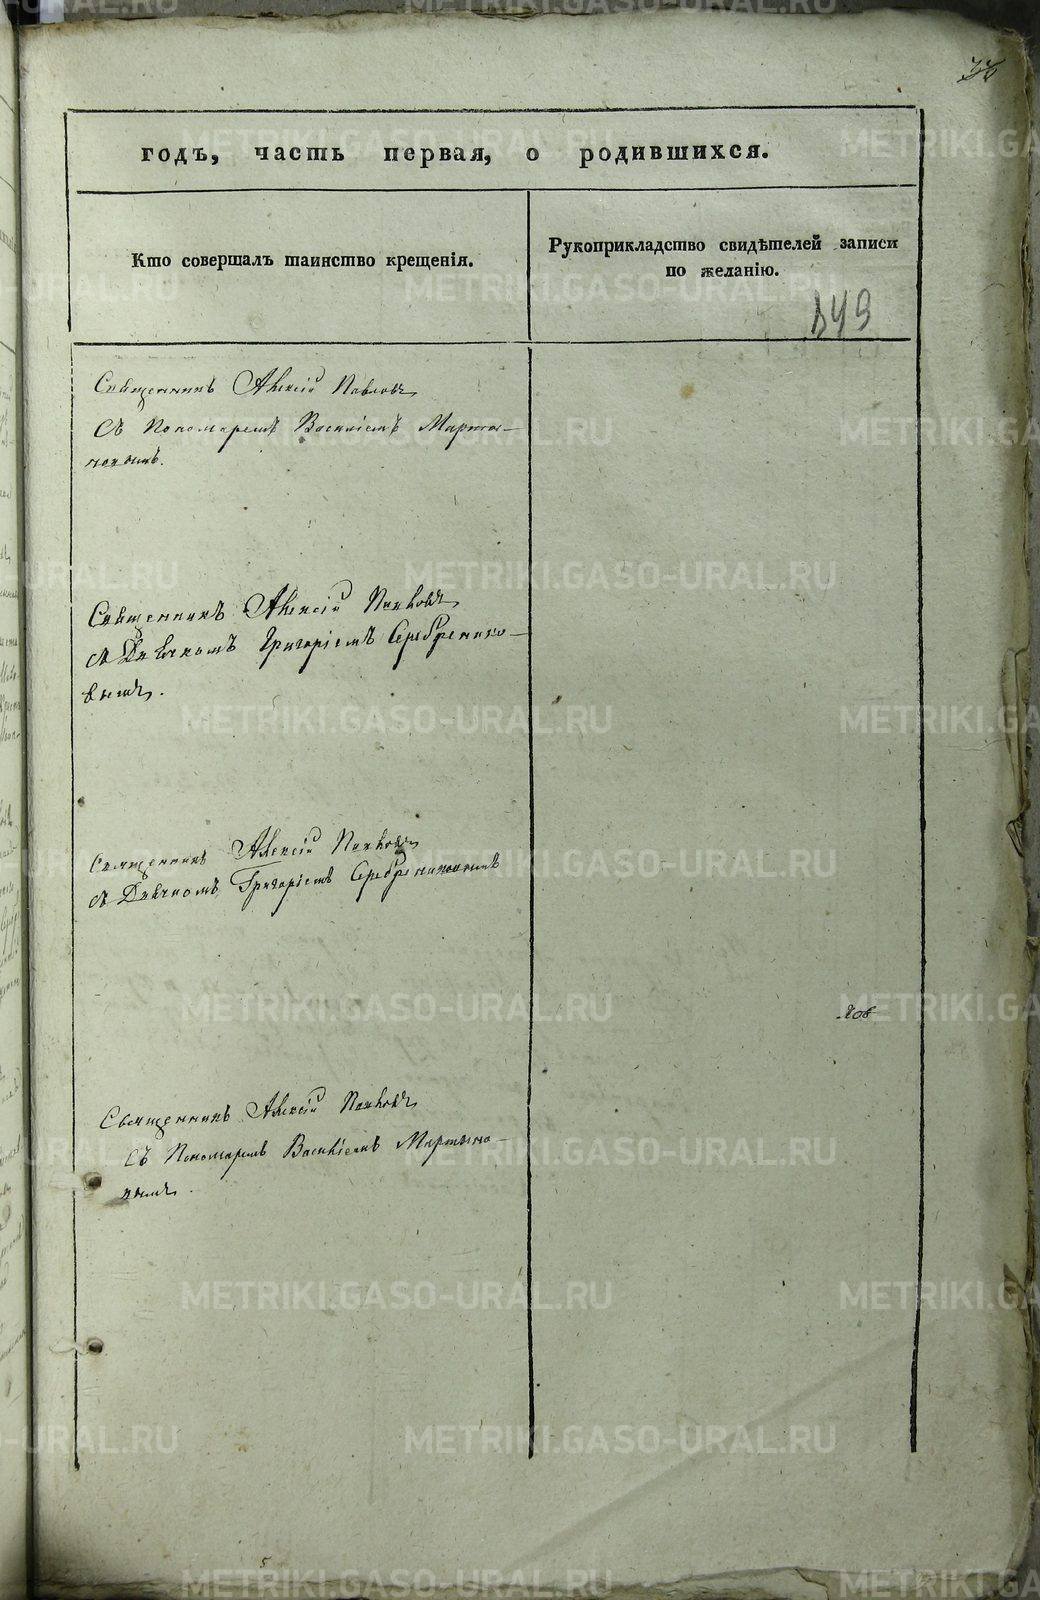 годъ, часть первая, о родившихся.
Кто совершалъ таинство крещенія.
Рукоприкладство свидѣтелей записи
по желанію.
849
Священникъ Алексій
съ Пономаремъ Василіемъ Марты-
новымъ.
Священникъ Алексій
съ Дьячкомъ Григоріемъ Серебренико-
вымъ.
Священникъ Алексій
съ Дьячкомъ Григоріемъ Серебрениковымъ
Священникъ Алексій
съ Пономаремъ Василіемъ Мартыно-
вымъ.
METRIKI.GASO-URAL.RU